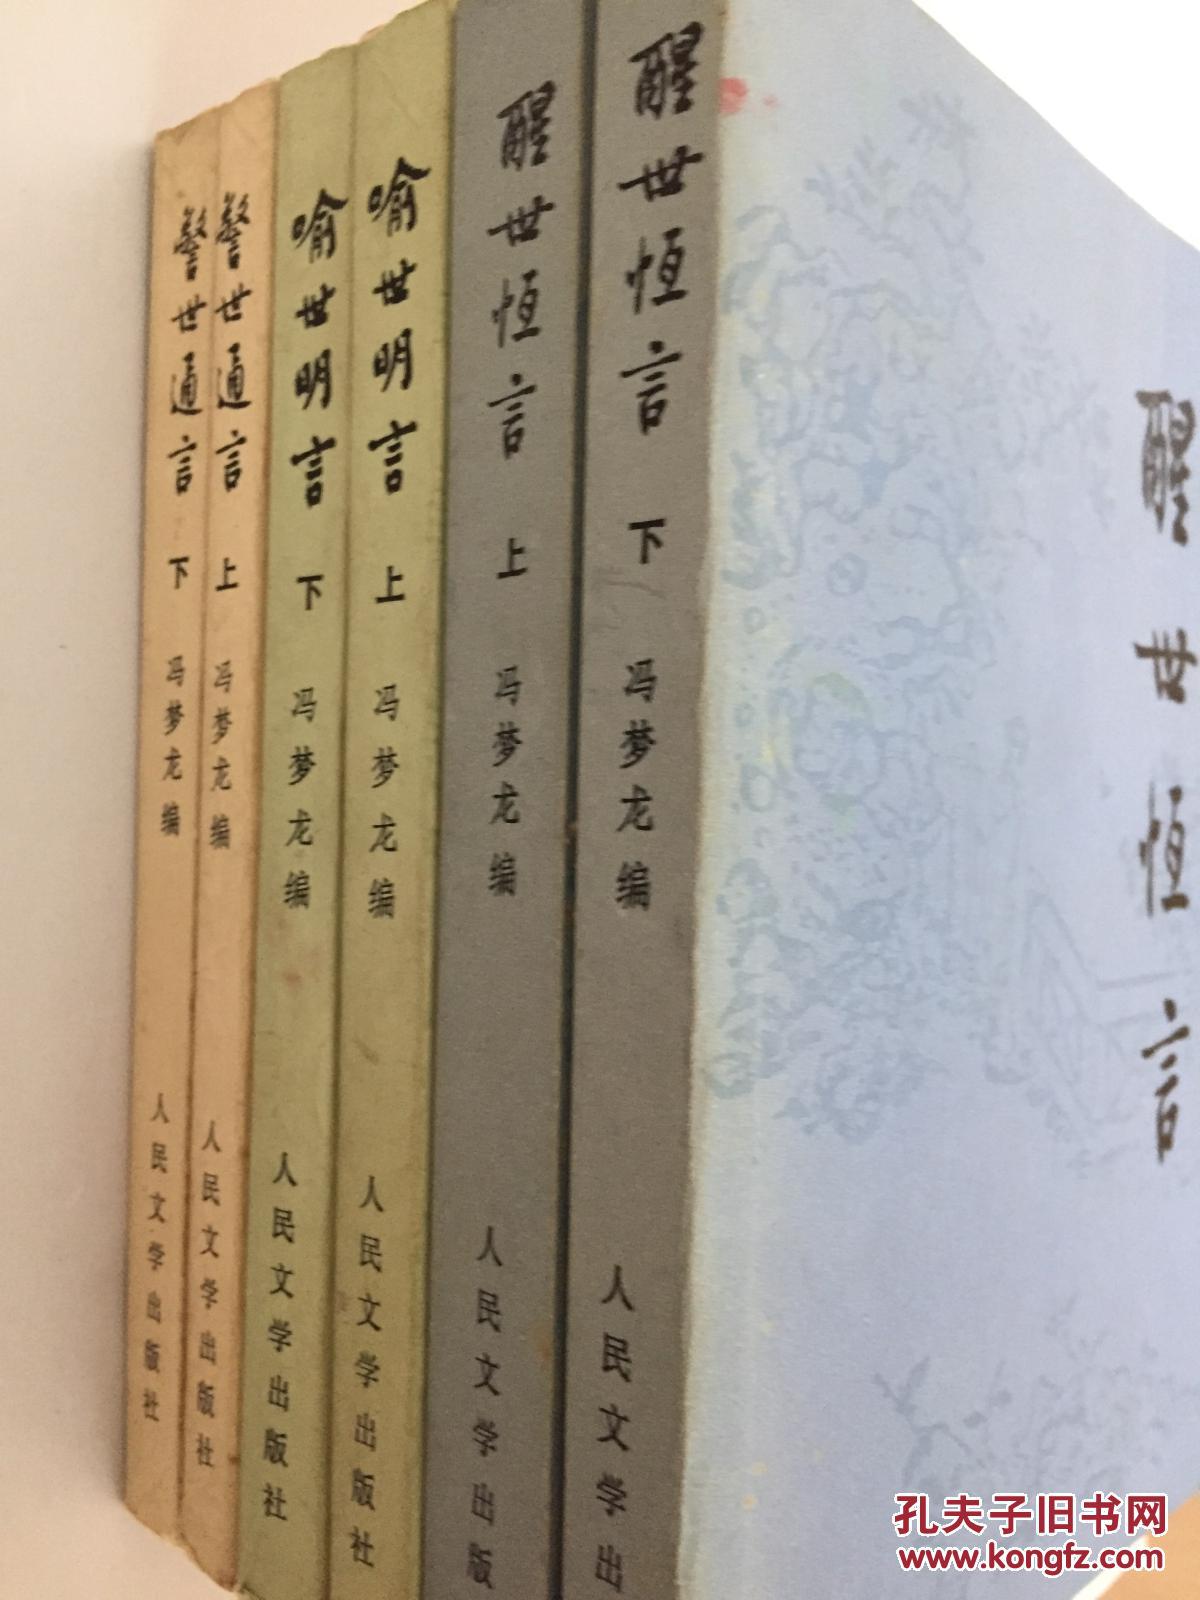 警世通言 下 冯梦龙编 人民文学出版社
警世通言 上 冯梦龙编 人民文学出版社
喻世明言 下 冯梦龙编 人民文学出版社
喻世明言 上 冯梦龙编 人民文学出版社
醒世恆言 上 冯梦龙编 人民文学出版
醒世恆言 下 冯梦龙编 人民文学出
醒世恆言
孔夫子旧书网
www.kongfz.com